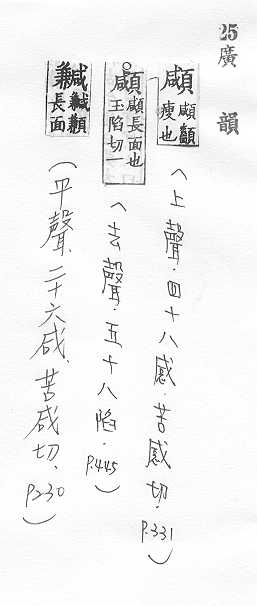 25廣韻
顑 顑顲瘦也
(上聲.四十八感.苦感切.P.331)
○顑 顑長面也玉陷切一
(去聲.五十八陷.P.445)
長面
(平聲、二十六咸、苦咸切、P.230)